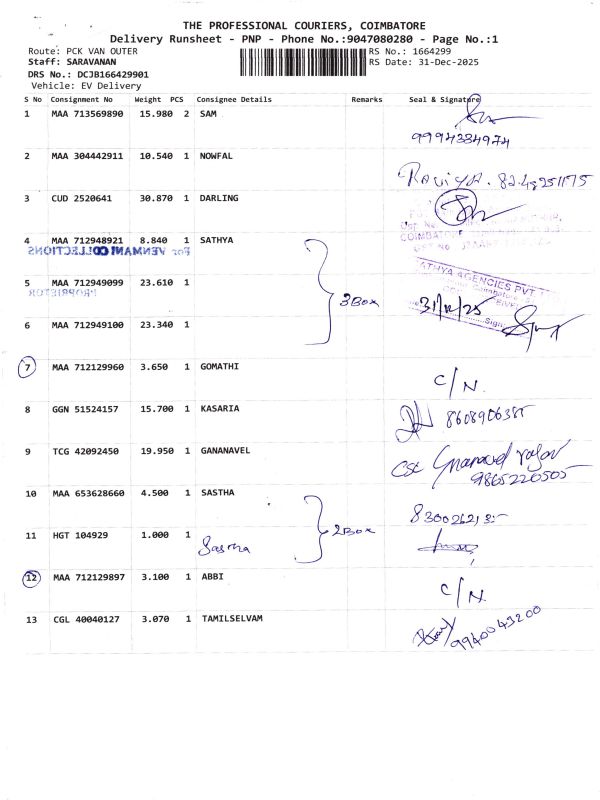 THE PROFESSIONAL COURIERS, COIMBATORE
Delivery Runsheet - PNP - Phone No.:9047080280 - Page No.:1
Route: PCK VAN OUTER RS No.: 1664299
Staff: SARAVANAN RS Date: 31-Dec-2025
DRS No.: DCJB166429901
Vehicle: EV Delivery
S No Consignment No Weight PCS Consignee Details Remarks Seal & Signature
1 MAA 713569890 15.980 2 SAM
9994384974
2 MAA 304442911 10.540 1 NOWFAL
3 CUD 2520641 30.870 1 DARLING
4 MAA 712948921 8.840 1 SATHYA
For VENMANI COLLECTIONS
5 MAA 712949099 23.610 1
PROPRIETOR
SATHYA AGENCIES PVT.
3 Box
31/12/25
6 MAA 712949100 23.340 1
7 MAA 712129960 3.650 1 GOMATHI
C/N.
8 GGN 51524157 15.700 1 KASARIA
9 TCG 42092450 19.950 1 GANANAVEL
9865220505
10 MAA 653628660 4.500 1 SASTHA
11 HGT 104929 1.000 1
2 Box
Sastha
12 MAA 712129897 3.100 1 ABBI
C/N.
13 CGL 40040127 3.070 1 TAMILSELVAM
9940043200